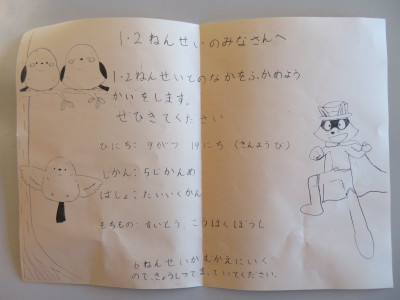 1・2ねんせいのみなさんへ
1・2ねんせいとのなかをふかめよう
かいをします。
ぜひきてください
ひにち：9がつ 19にち（きんようび）
じかん：5じかんめ
ばしょ：たいいくかん
もちもの：すいとう こうはくぼうし
6ねんせいがむかえにいく
ので、きょうしつでまっていてください。